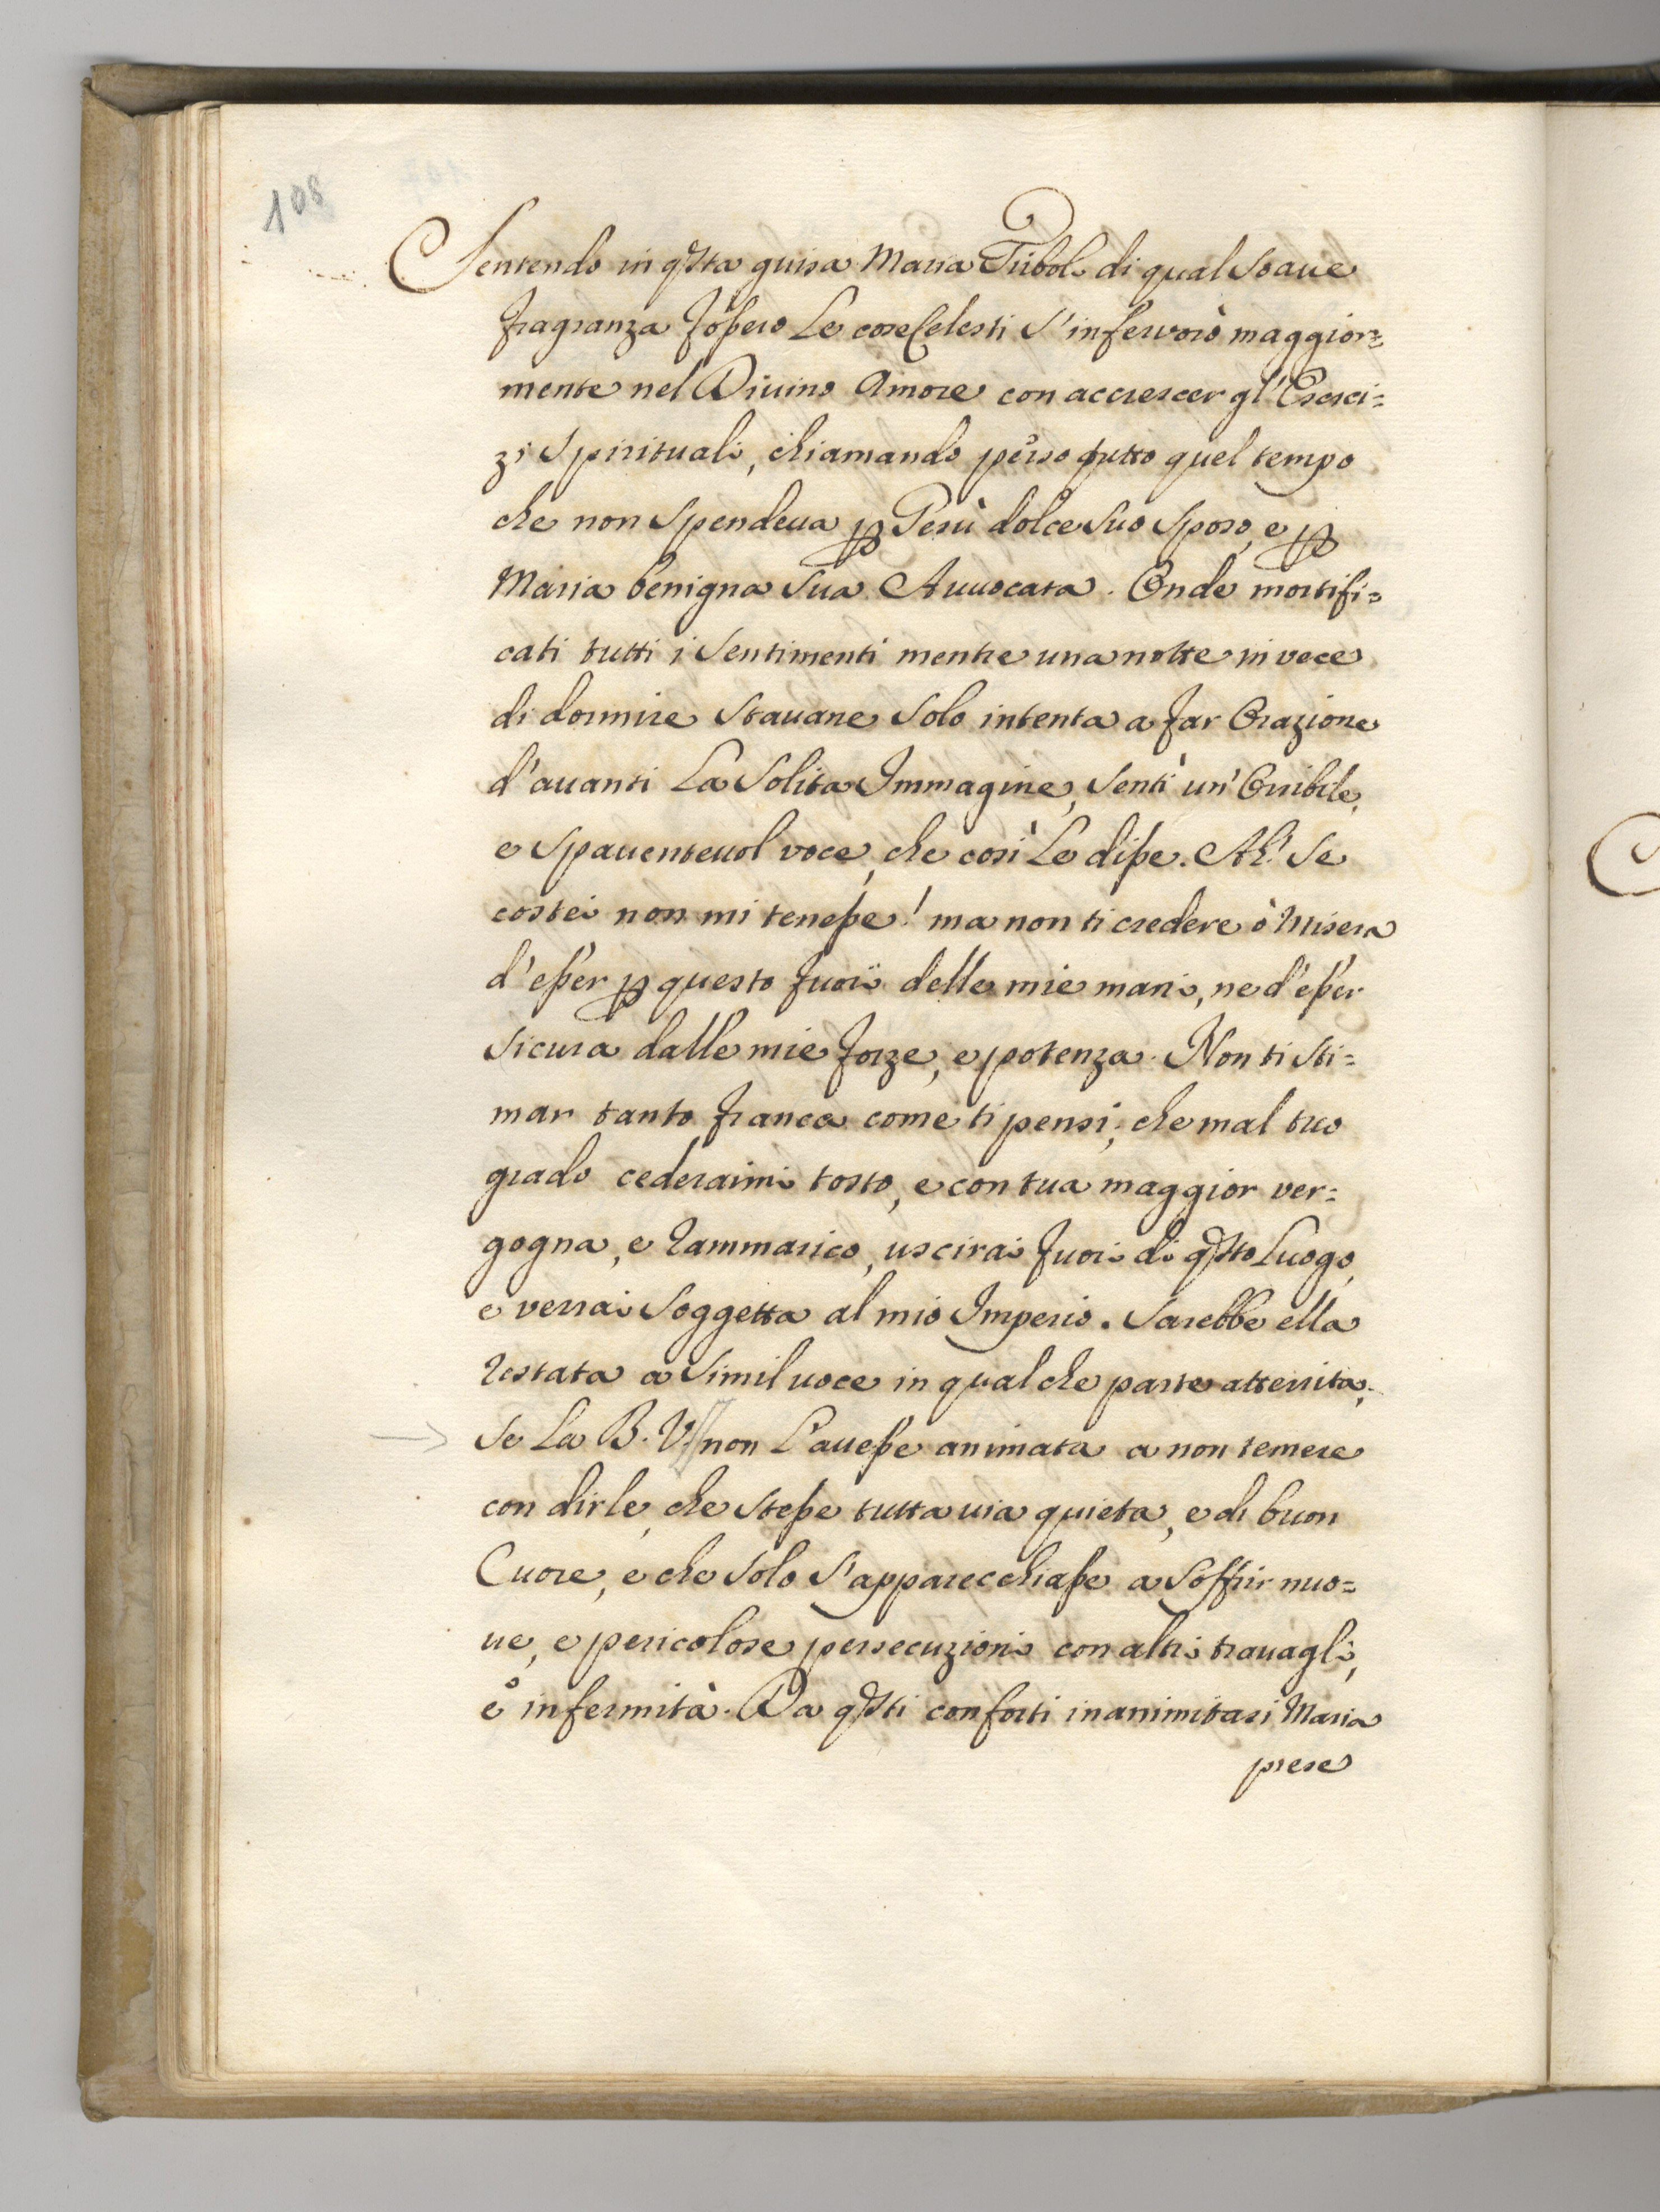 108
Sentendo in qsta guisa Maria Triboli di qual Soaue
fragranza fossero Le cose Celesti s'infervorò maggior=
mente nel Diuino Amore con accrescer gl'Eserci=
zi Spirituali, chiamando perso tutto quel tempo
che non Spendeua p Gesù dolce Suo Sposo, e p
Maria benigna Sua Auuocata. Onde mortifi=
cati tutti i Sentimenti mentre una notte in vece
di dormire Stauane Solo intenta a far Orazione
d'auanti La Solita Immagine, Sentì un'Orribile,
e Spauenteuol voce, che così Le disse. Ah! Se
costei non mi tenesse! ma non ti credere ò Misera
d'esser p questo fuori delle mie mani, ne d'esser
Sicura dalle mie forze, e potenza. Non ti Sti=
mar tanto franca come ti pensi; che mal tuo
grado cederaimi tosto, e con tua maggior ver=
gogna, e rammarico, uscirai fuori di qsto Luogo,
e verrai Soggetta al mio Imperio. Sarebbe ella
restata a Simil uoce in qualche parte atterrita,
Se La B. V. non L'auesse animata a non temere
con dirle, che Stesse tutta uia quieta, e di buon
Cuore, e che Solo S'apparecchiasse a Soffrir nuo=
ue, e pericolose persecuzioni con altri trauagli,
e infermità. Da qsti conforti inanimitasi Maria
prese